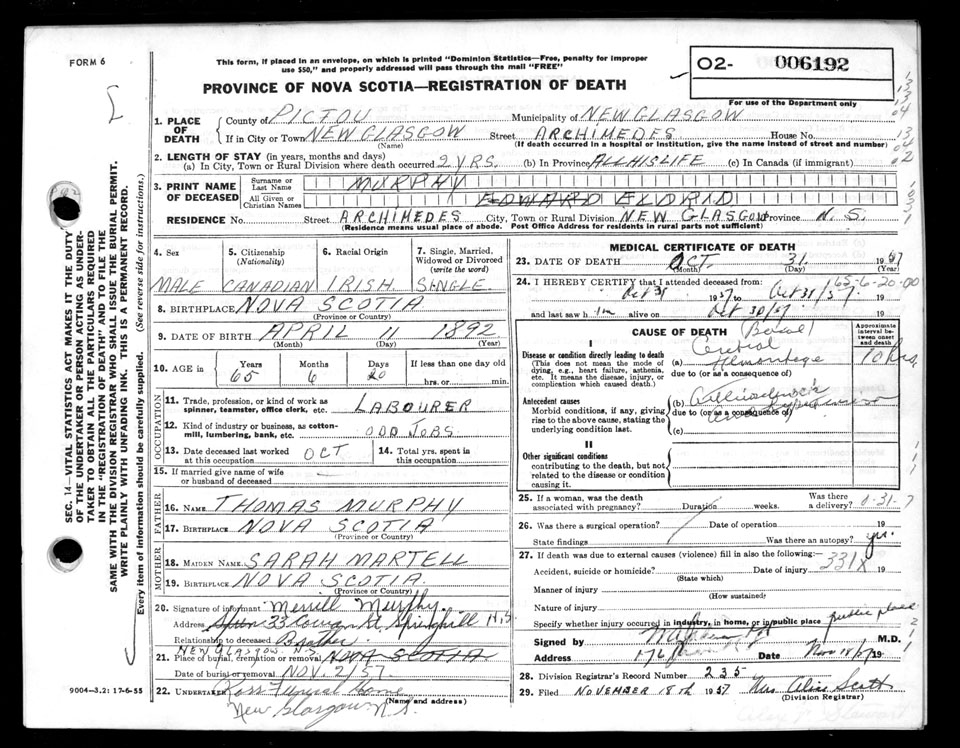 FORM 6
This form, if placed in an envelope, on which is printed "Dominion Statistics—Free, penalty for improper
use $50," and properly addressed will pass through the mail "FREE"
PROVINCE OF NOVA SCOTIA—REGISTRATION OF DEATH
02- 006192
For use of the Department only
SEC. 14—VITAL STATISTICS ACT MAKES IT THE DUTY
OF THE UNDERTAKER OR PERSON ACTING AS UNDER-
TAKER TO OBTAIN ALL THE PARTICULARS REQUIRED
IN THE "REGISTRATION OF DEATH" AND TO FILE THE
SAME WITH THE DIVISION REGISTRAR WHO SHALL ISSUE THE BURIAL PERMIT.
WRITE PLAINLY WITH UNFADING INK. THIS IS A PERMANENT RECORD.
Every item of information should be carefully supplied. (See reverse side for instructions.)
1. PLACE OF DEATH
County of PICTOU Municipality of NEW GLASGOW
If in City or Town NEW GLASGOW Street ARCHIMEDES House No.
(Name) (If death occurred in a hospital or institution, give the name instead of street and number)
2. LENGTH OF STAY (in years, months and days)
(a) In City, Town or Rural Division where death occurred 2 YRS. (b) In Province ALL HIS LIFE (c) In Canada (if immigrant)
3. PRINT NAME OF DECEASED
Surname or Last Name MURPHY
All Given or Christian Names EDWARD ELDRID
RESIDENCE No. Street ARCHIMEDES City, Town or Rural Division NEW GLASGOW Province N.S.
(Residence means usual place of abode. Post Office Address for residents in rural parts not sufficient)
4. Sex 5. Citizenship (Nationality) 6. Racial Origin 7. Single, Married, Widowed or Divorced (write the word)
MALE CANADIAN IRISH. SINGLE.
8. BIRTHPLACE NOVA SCOTIA
(Province or Country)
9. DATE OF BIRTH APRIL 11 1892
(Month) (Day) (Year)
10. AGE in Years Months Days If less than one day old
65 6 20 hrs. or min.
OCCUPATION
11. Trade, profession, or kind of work as
spinner, teamster, office clerk, etc. LABOURER
12. Kind of industry or business, as cotton-
mill, lumbering, bank, etc. ODD JOBS
13. Date deceased last worked at this occupation OCT 14. Total yrs. spent in this occupation
15. If married give name of wife
or husband of deceased
FATHER
16. NAME THOMAS MURPHY
17. BIRTHPLACE NOVA SCOTIA
(Province or Country)
MOTHER
18. MAIDEN NAME SARAH MARTELL
19. BIRTHPLACE NOVA SCOTIA.
(Province or Country)
20. Signature of informant Merrill Murphy.
Address 33 Cowan St. Springhill N.S.
Relationship to deceased Brother.
NEW GLASGOW. N.S.
21. Place of burial, cremation or removal NOVA SCOTIA
Date of burial or removal NOV. 2/57
22. UNDERTAKER Ross Funeral Home
(Name and address)
New Glasgow N.S.
9004-3.2: 17-6-55
MEDICAL CERTIFICATE OF DEATH
23. DATE OF DEATH OCT. 31 1957
(Month) (Day) (Year)
24. I HEREBY CERTIFY that I attended deceased from: 65-6-20-00
Oct 31 1957 to Oct 31/57 19
and last saw him alive on Oct 30/57 19
CAUSE OF DEATH
Approximate interval between onset and death
I
Disease or condition directly leading to death
(This does not mean the mode of dying, e.g., heart failure, asthenia, etc. It means the disease, injury, or complication which caused death.)
(a) Hemorrhage 10 hrs.
due to (or as a consequence of)
Antecedent causes
Morbid conditions, if any, giving rise to the above cause, stating the underlying condition last.
(b)
due to (or as a consequence of)
(c)
II
Other significant conditions
contributing to the death, but not related to the disease or condition causing it.
25. If a woman, was the death associated with pregnancy? Duration weeks. Was there a delivery?
26. Was there a surgical operation? Date of operation 19
State findings Was there an autopsy? yes.
27. If death was due to external causes (violence) fill in also the following:—
Accident, suicide or homicide? Date of injury 331X 19
(State which)
Manner of injury
(How sustained)
Nature of injury
Specify whether injury occurred in industry, in home, or in public place public place
Signed by M.D.
Address Date Nov 18/57 19
28. Division Registrar's Record Number 235
29. Filed NOVEMBER 18th 1957 Mrs. Alice Scott
(Division Registrar)